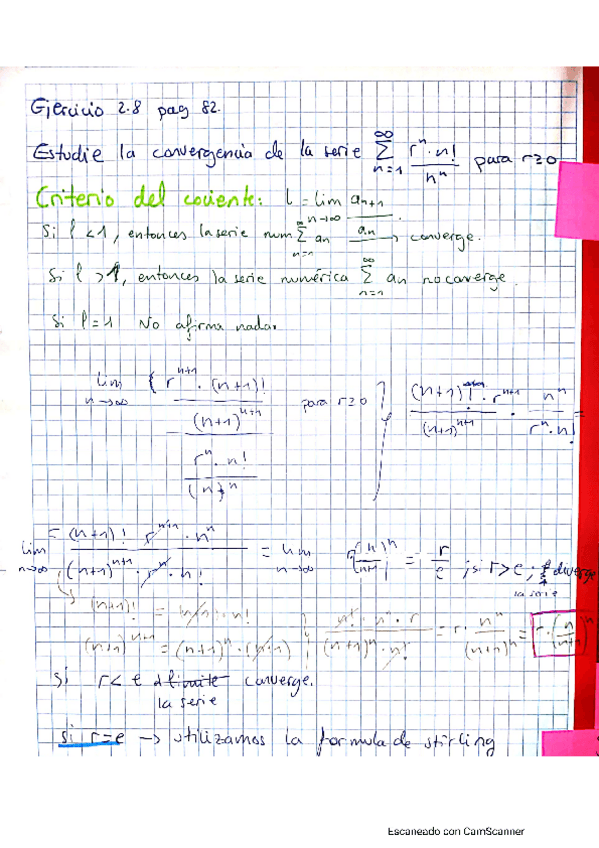 Ejercicio 2.8 pag 82.
Estudie la convergencia de la serie ∑_{n=1}^{∞} r^n · n! / n^n para r≥0
Criterio del cociente: l = lim_{n→∞} a_{n+1} / a_n
Si l < 1, entonces la serie num ∑_{n=1}^{∞} a_n → converge.
Si l > 1, entonces la serie numérica ∑_{n=1}^{∞} a_n no converge.
Si l = 1 No afirma nada.
lim_{n→∞} { (r^{n+1} · (n+1)! / (n+1)^{n+1}) / (r^n · n! / (n)^n) para r≥0 } (n+1)! · r^{n+1} / (n+1)^{n+1} · n^n / r^n · n! =
= lim_{n→∞} (n+1)! r^{n+1} · n^n / (n+1)^{n+1} · r^n · n! = lim_{n→∞} r (n / n+1)^n = r / e ; si r > e ; diverge
la serie
(n+1)! = (n+1) · n! n! · n^n · r / (n+1)^n · n! = r · n^n / (n+1)^n = r · (n / n+1)^n
(n+1)^{n+1} = (n+1)^n · (n+1)
Si r < e el limite converge.
la serie
si r=e → utilizamos la formula de stirling
Escaneado con CamScanner